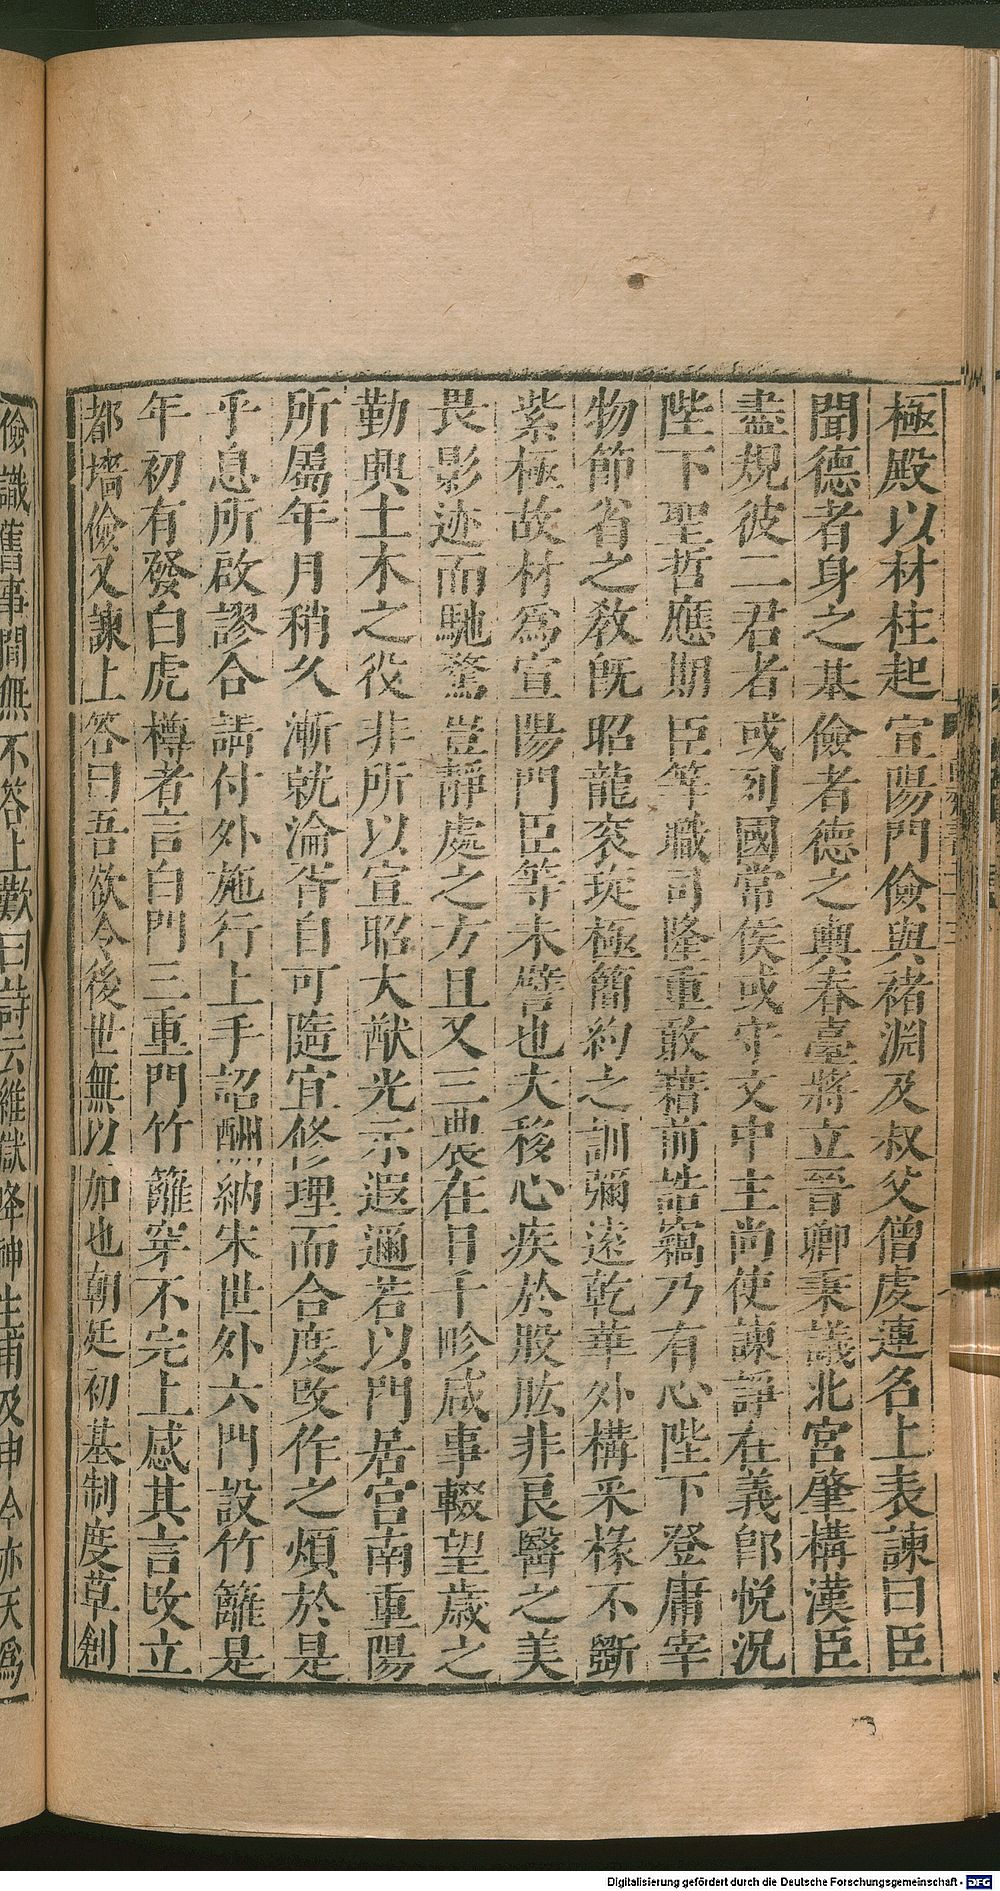 極殿以材柱起宣陽門儉與褚淵及叔父僧虔連名上表諫曰臣
聞德者身之基儉者德之輿春臺將立晉卿秉議北宮肇構漢臣
盡規彼二君者或列國常侯或守文中主尚使諫諍在義卽悅況
陛下聖哲應期臣等職司隆重敢藉前誥竊乃有心陛下登庸宰
物節省之敎旣昭龍衮琁極簡約之訓彌遠乾華外構采椽不斲
紫極故材爲宣陽門臣等未譬也夫移心疾於股肱非良醫之美
畏影迹而馳騖豈靜處之方且又三農在日千畛咸事輟望歲之
勤興土木之役非所以宣昭大猷光示遐邇若以門居宮南重陽
所屬年月稍久漸就淪胥自可隨宜修理而合度改作之煩於是
乎息所啟謬合請付外施行上手詔酬納宋世外六門設竹籬是
年初有發白虎樽者言白門三重門竹籬穿不完上感其言改立
都墻儉又諫上答曰吾欲令後世無以加也朝廷初基制度草創
儉識舊事問無不答上歎曰詩云維嶽降神生甫及申今亦天爲
Digitalisierung gefördert durch die Deutsche Forschungsgemeinschaft - DFG